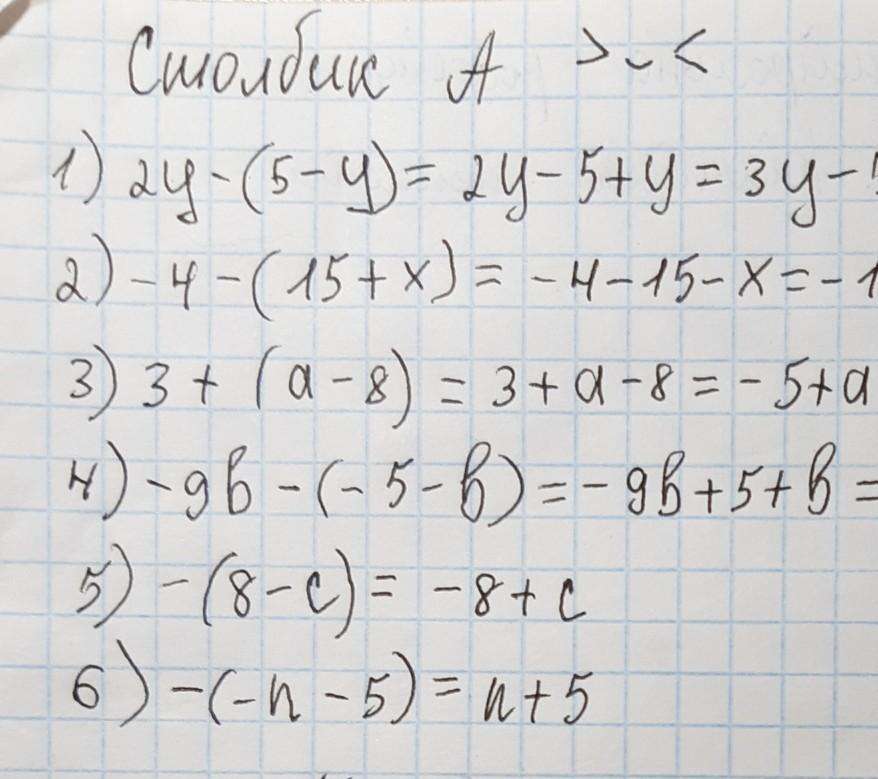 Столбик А >‿<
1) 2y-(5-y)= 2y-5+y=3y-
2) -4-(15+x)=-4-15-x=-1
3) 3+(a-8)=3+a-8=-5+a
4) -9b-(-5-b)=-9b+5+b=
5) -(8-c)= -8+c
6) -(-n-5)= n+5